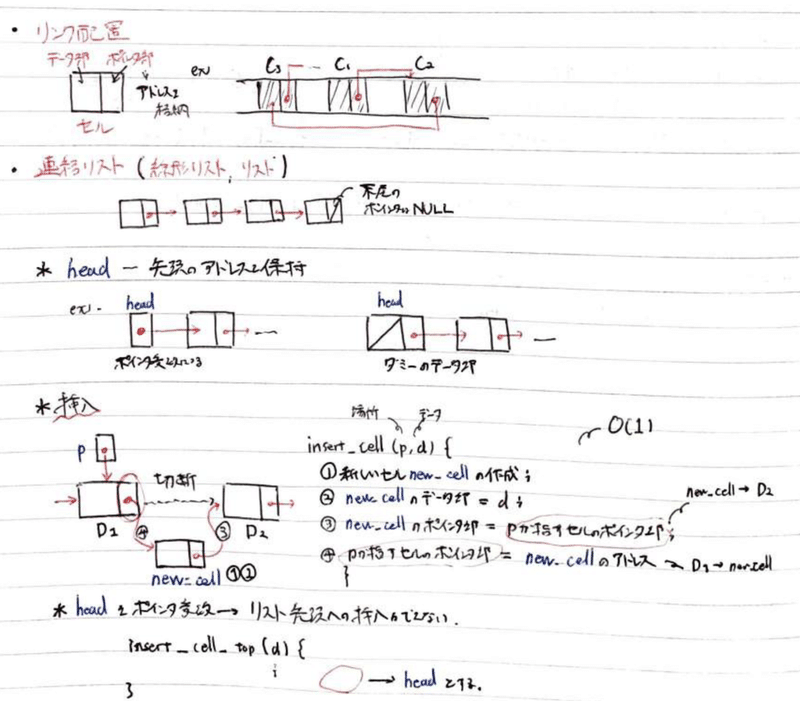 ・リンク配置
データ部 ポインタ部
アドレスを
格納
セル
ex
C3 … C1 C2
・連結リスト (線形リスト, リスト)
末尾の
ポインタは NULL
* head — 先頭のアドレスを保持
ex.
head
head
ポインタ変数
ダミーのデータ部
* 挿入
場所 データ
insert_cell (p, d) {
O(1)
① 新しいセル new_cell の作成;
② new_cell のデータ部 = d;
③ new_cell のポインタ部 = pが指すセルのポインタ部;
new_cell → D2
④ pが指すセルのポインタ部 = new_cell のアドレス
D1 → new_cell
}
p
切断
D1
④
③
D2
new_cell ①②
* head をポインタ変数 → リスト先頭への挿入ができない.
insert_cell_top (d) {
⋮
→ head とする.
}